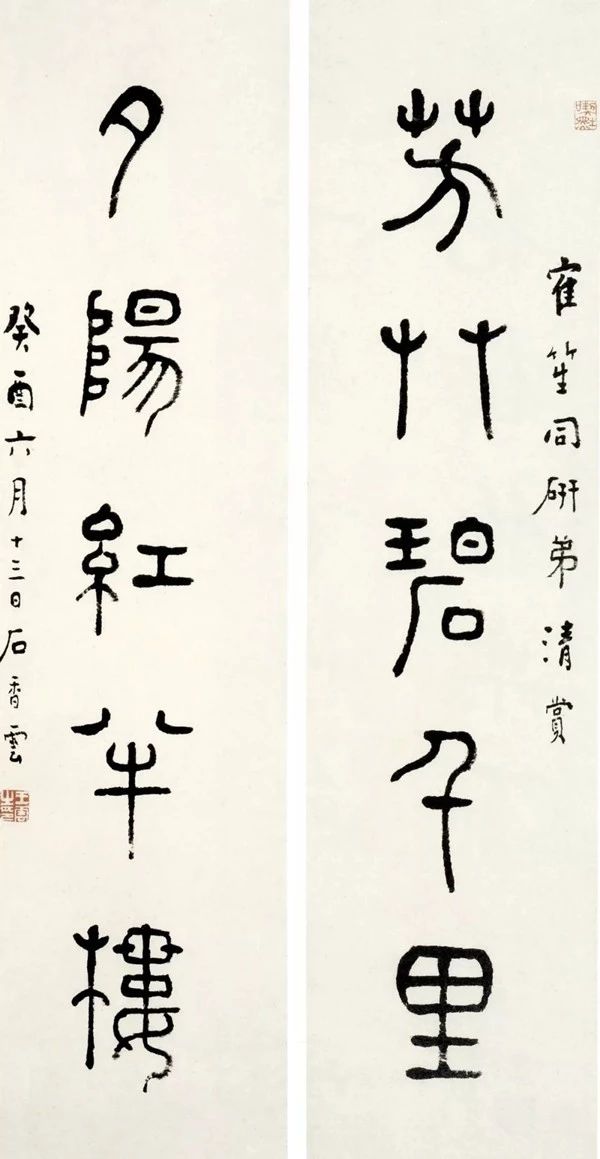 寉笙同研弟清賞
芳艸碧千里
夕陽紅半樓
癸酉六月十三日石香雲
王雲之印